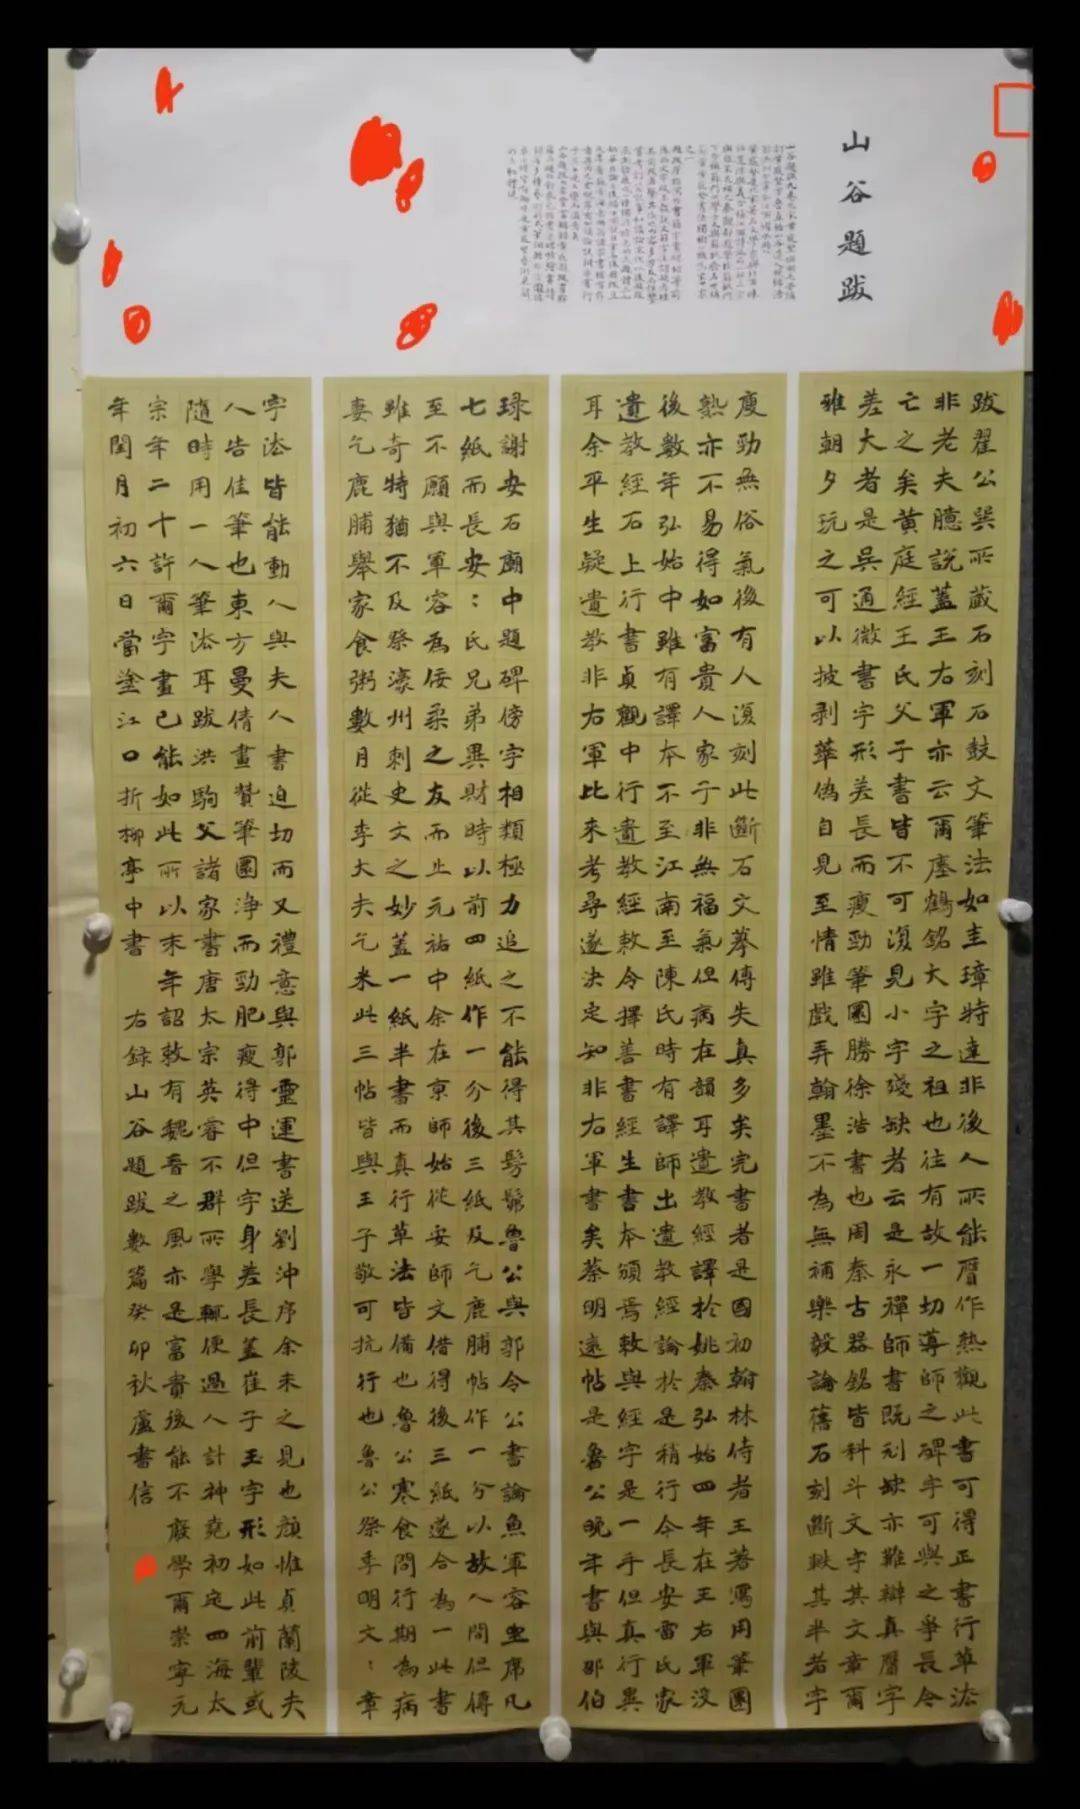 山谷題跋
跋翟公巽所藏石刻石鼓文筆法如圭璋特達非後人所能贋作熟觀此書可得正書行草法
非老夫臆說蓋王右軍亦云爾瘞鶴銘大字之祖也往有故一切導師之碑字可與之爭長今
亡之矣黃庭經王氏父子書皆不可復見小字殘缺者云是永禪師書既刓缺亦難辯真贋字
差大者是吳通微書字形差長而瘦勁筆圜勝徐浩書也周秦古器銘皆科斗文字其文章爾
雅朝夕玩之可以披剥華偽自見至情雖戲弄翰墨不為無補樂毅論舊石刻斷軼其半者字
瘦勁無俗氣後有人復刻此斷石文摹傳失真多矣完書者是國初翰林侍者王著寫用筆圜
熟亦不易得如富貴人家子非無福氣但病在韻耳遺教經譯於姚秦弘始四年在王右軍没
後數年弘始中雖有譯本不至江南至陳氏時有譯師出遺教經論於是稍行今長安雷氏家
遺教經石上行書貞觀中行遺教經敕令擇善書經生書本頒焉敕與經字是一手但真行異
耳余平生疑遺教非右軍比來考尋遂決定知非右軍書矣蔡明遠帖是魯公晚年書與邵伯
琭謝安石廟中題碑傍字相類極力追之不能得其髣髴魯公與郭令公書論魚軍容坐席凡
七紙而長安：氏兄弟異財時以前四紙作一分後三紙及乞鹿脯帖作一分以故人間但傳
至不願與軍容為佞柔之友而止元祐中余在京師始從安師文借得後三紙遂合為一此書
雖奇特猶不及祭濠州刺史文之妙蓋一紙半書而真行草法皆備也魯公寒食問行期為病
妻乞鹿脯舉家食粥數月從李大夫乞米此三帖皆與王子敬可抗行也魯公祭季明文：章
字法皆能動人與夫人書迫切而又禮意與郭靈運書送劉沖序余未之見也顏惟貞蘭陵夫
人告佳筆也東方曼倩畫贊筆圜淨而勁肥瘦得中但字身差長蓋崔子玉字形如此前輩或
隨時用一人筆法耳跋洪駒父諸家書唐太宗英睿不群所學輒便過人計神堯初定四海太
宗年二十許爾字畫已能如此所以末年詔敕有魏晉之風亦是富貴後能不廢學爾崇寧元
年閏月初六日當塗江口折柳亭中書 右録山谷題跋數篇癸卯秋盧書信